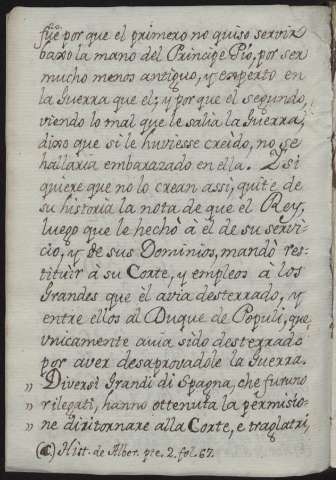 fue por que el primero no quiso servir
baxo la mano del Principe Pio, por ser
mucho menos antiguo, y experto en
la Guerra que el; y por que el segundo,
viendo lo mal que le salia la Guerra,
dixo que si le huviesse creido, no se
hallaria embarazado en ella. Y si
quiere que no lo crean assi, quite de
su historia la nota de que el Rey,
luego que le hechò à él de su servi-
cio, y de sus Dominios, mandò res-
tituir à su Corte, y empleos à los
Grandes que èl avia desterrado, y
entre ellos al Duque de Populi, que
unicamente avia sido desterrado
por aver desaprovadole la Guerra.
„ Diversi Grandi di Spagna, che furuno
„ rilegati, hanno ottenuta la permisio-
„ ne di ritornare alla Corte, e tra gl'altri,
() Hist. de Alber. pte. 2. fol. 67.